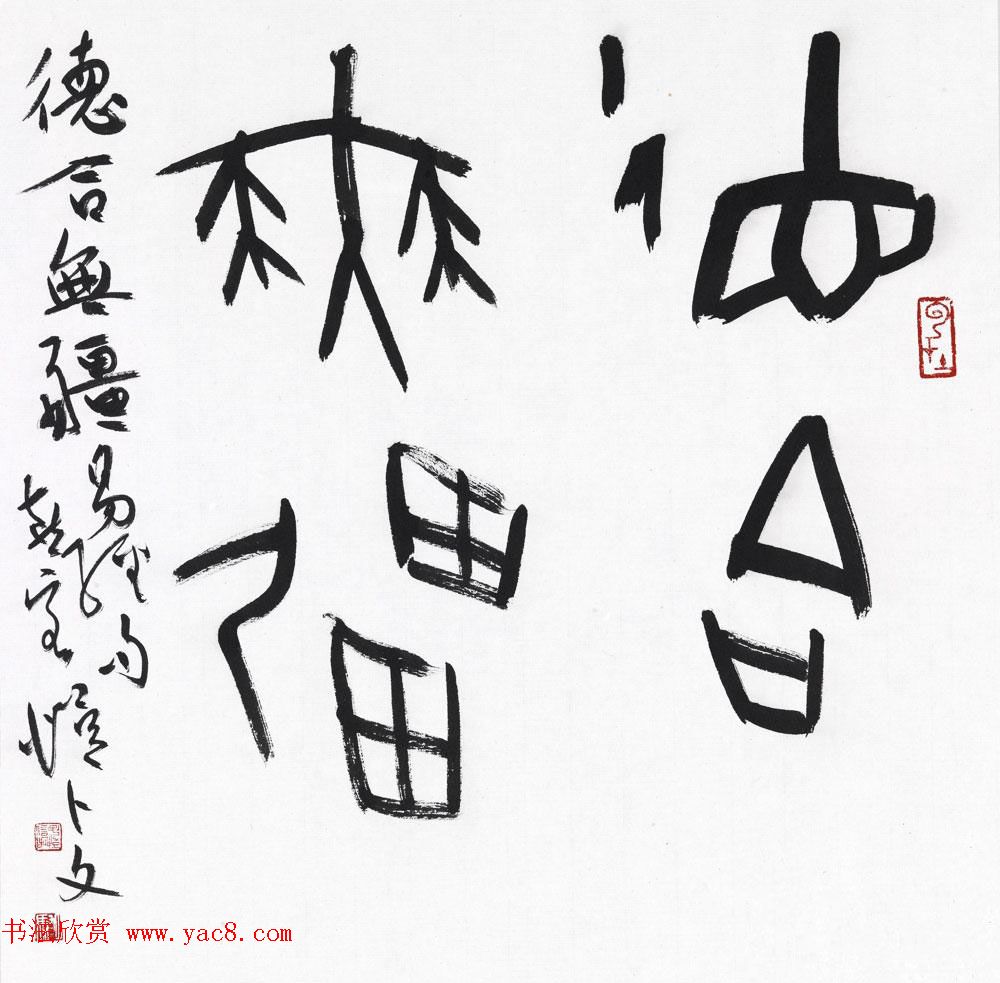 德合
無疆
德合無疆易經句
愷卜文
书法欣赏 www.yac8.com